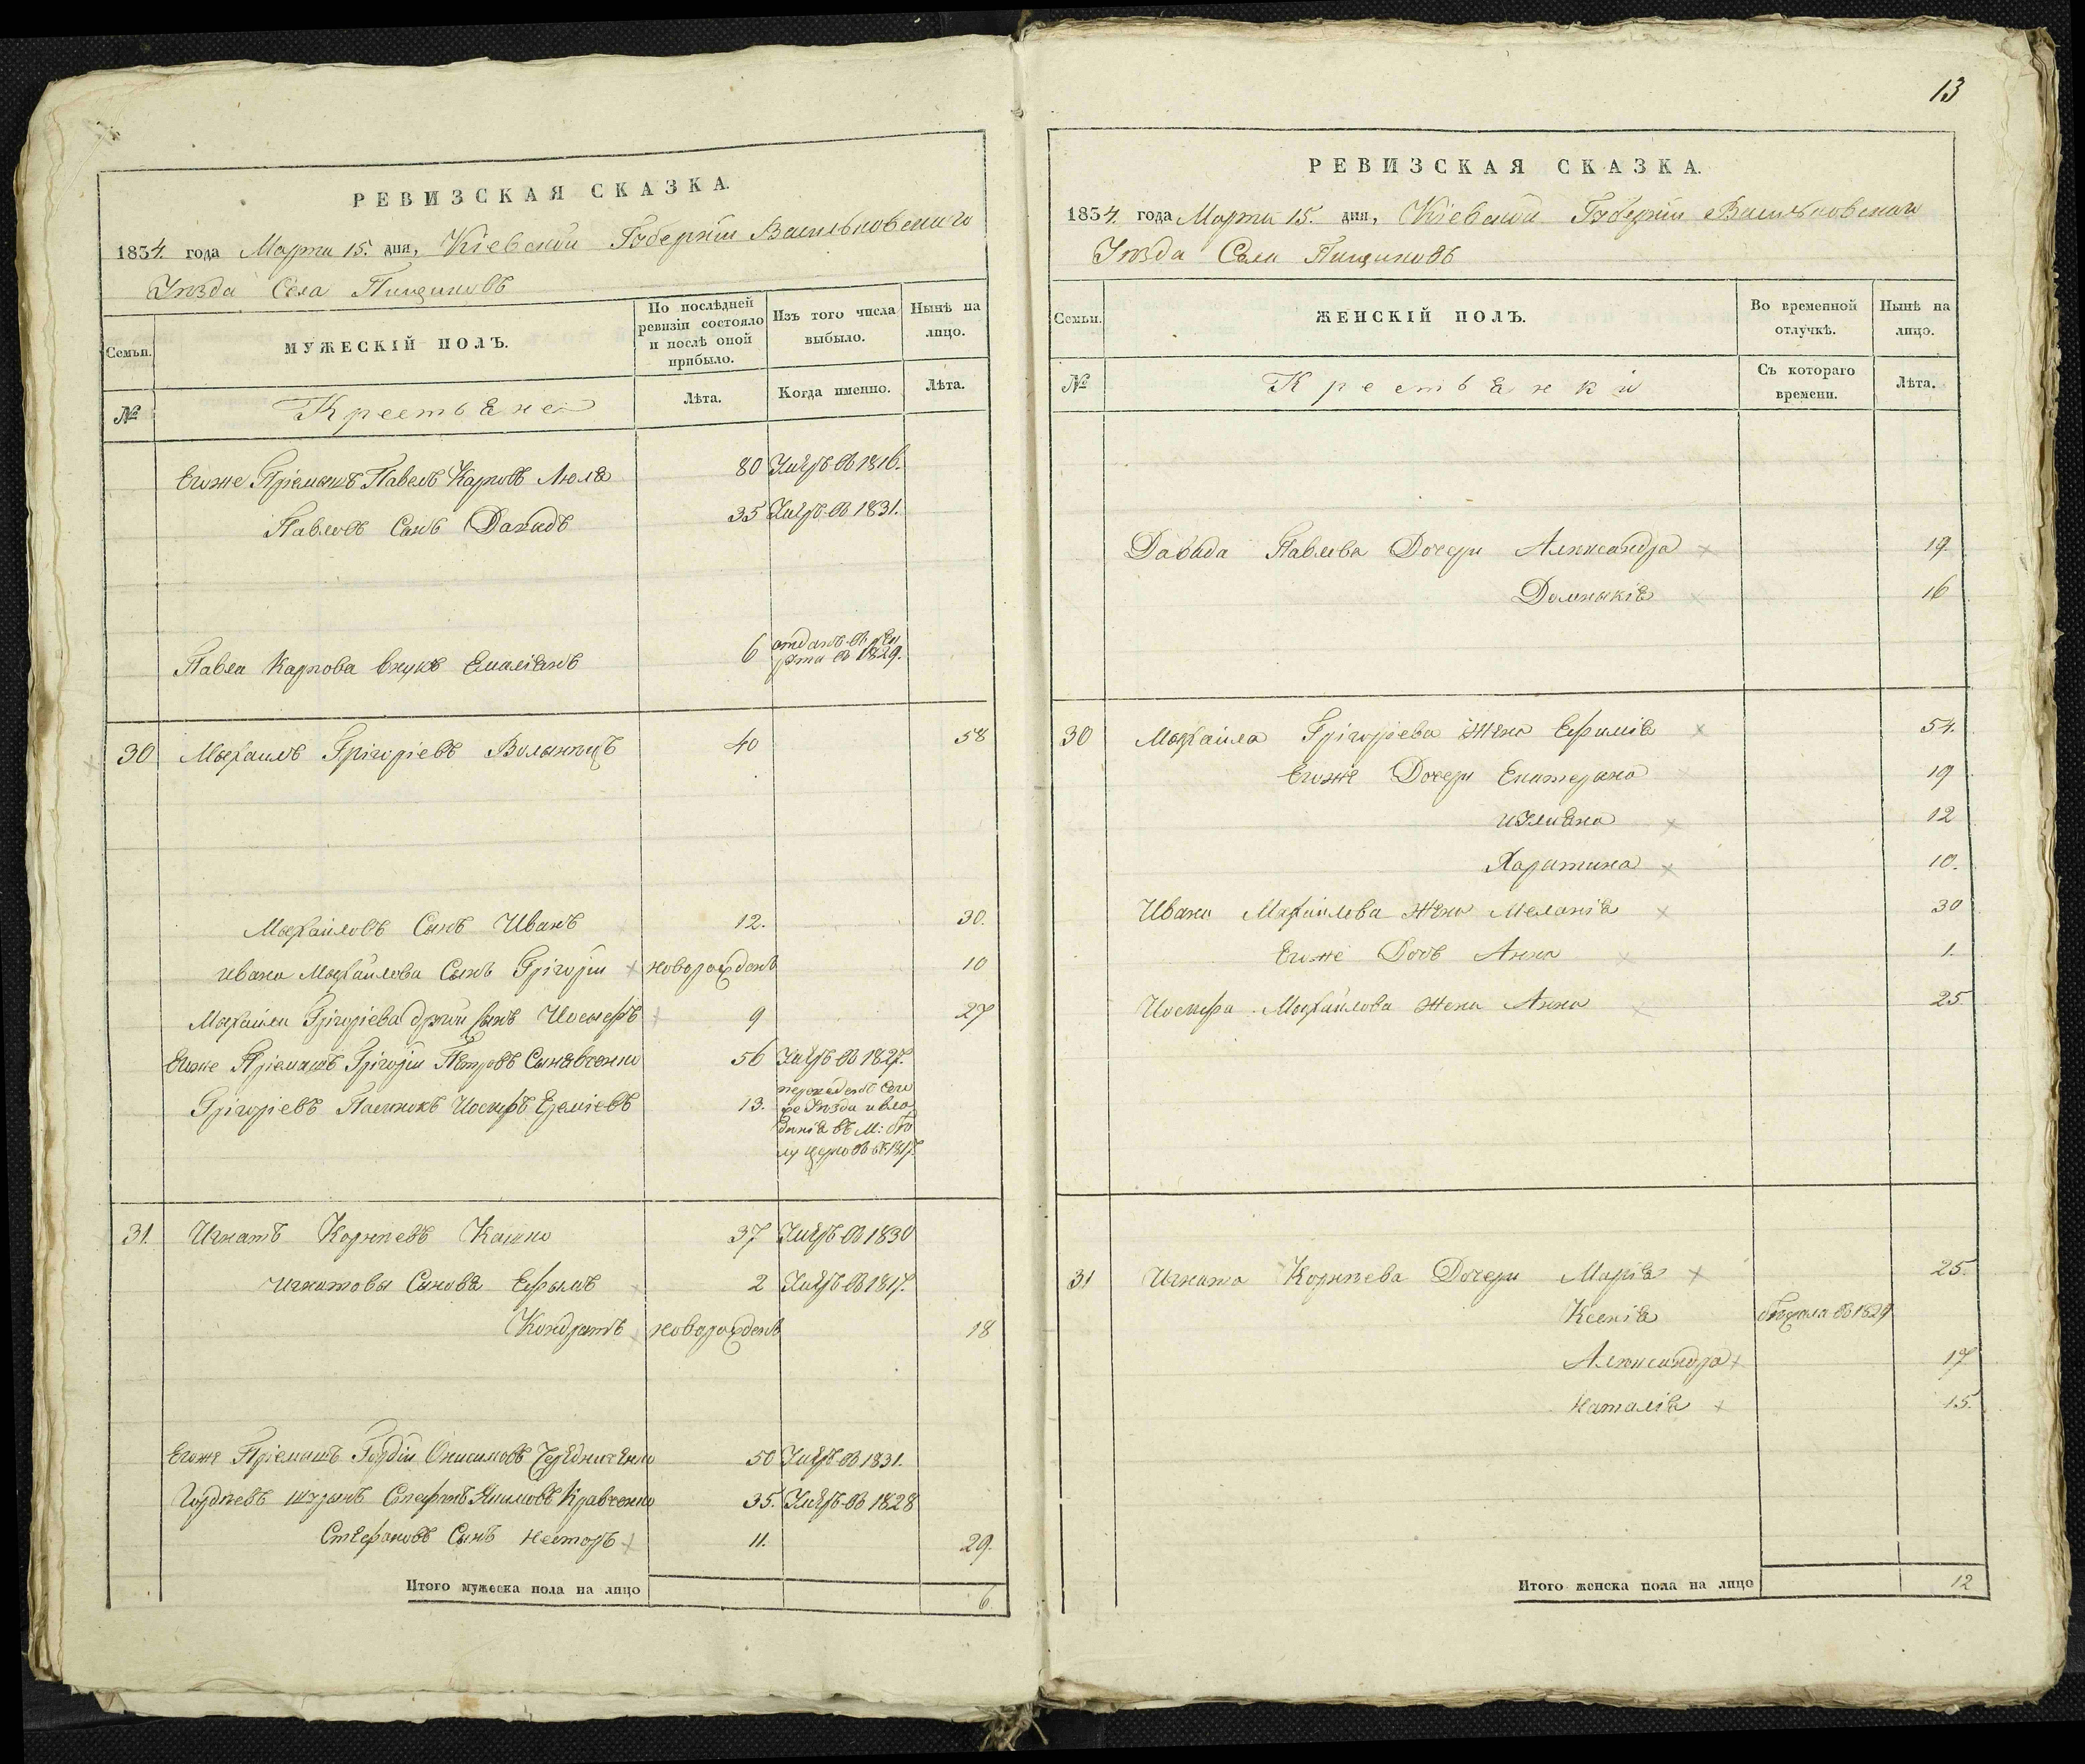 РЕВИЗСКАЯ СКАЗКА.
1834. года Марта 15. дня, Кіевской Губерніи Васильковскаго
Уѣзда Села Пищиковъ
Семьи.
МУЖЕСКІЙ ПОЛЪ.
По послѣдней ревизіи состояло и послѣ оной прибыло.
Изъ того числа выбыло.
Нынѣ на лицо.
№
Крестьяне
Лѣта.
Когда именно.
Лѣта.
Егоже Пріемышъ Павелъ Карповъ Люля 80 Умеръ въ 1816.
Павловъ Сынъ Давидъ 35 Умеръ въ 1831.
Павла Карпова внукъ Емиліянъ 6 отданъ въ рекруты въ 1829.
30 Михаилъ Григоріевъ Волынецъ 40 58
Михайловъ Сынъ Иванъ 12. 30.
Ивана Михайлова Сынъ Григорій новорожденъ 10
Михайла Григоріева другой сынъ Иосифъ 9 27
Егоже Пріемышъ Григорій Петровъ 56 Умеръ въ 1827.
Григоріевъ Пасынокъ Иосифъ 13. переведенъ сего
же уѣзда и вла
денія въ М: Бѣ
лу церковь въ 1817.
31. Игнатъ Корнѣевъ Кашко 37 Умеръ въ 1830
Игнатовы Сыновя Ефымъ 2 Умеръ въ 1817.
Кондратъ новорожденъ 18
Егоже Пріемышъ Гордій Онисимовъ 50 Умеръ въ 1831.
Гордѣевъ шуринъ Стефанъ Якимовъ Кравченко 35. Умеръ въ 1828
Стефановъ Сынъ Несторъ 11. 29.
Итого мужеска пола на лицо 6.
13
РЕВИЗСКАЯ СКАЗКА.
1834. года Марта 15. дня, Кіевской Губерніи Васильковскаго
Уѣзда Села Пищиковъ
Семьи.
ЖЕНСКІЙ ПОЛЪ.
Во временной отлучкѣ.
Нынѣ на лицо.
№
Крестьянки
Съ котораго времени.
Лѣта.
Давида Павлова Дочери Александра 19
Домныкія 16
30 Михайла Григоріева Жена Ефимія 54.
Егоже Дочери Екатерина 19
Улияна 12
Харитина 10.
Ивана Михайлова Жена Меланія 30
Егоже Дочь Анна 1.
Иосифа Михайлова Жена Анна 25
31 Игната Корнѣева Дочери Марія 25.
Ксенія бѣжала въ 1829
Александра 17
Наталія 15.
Итого женска пола на лицо 12